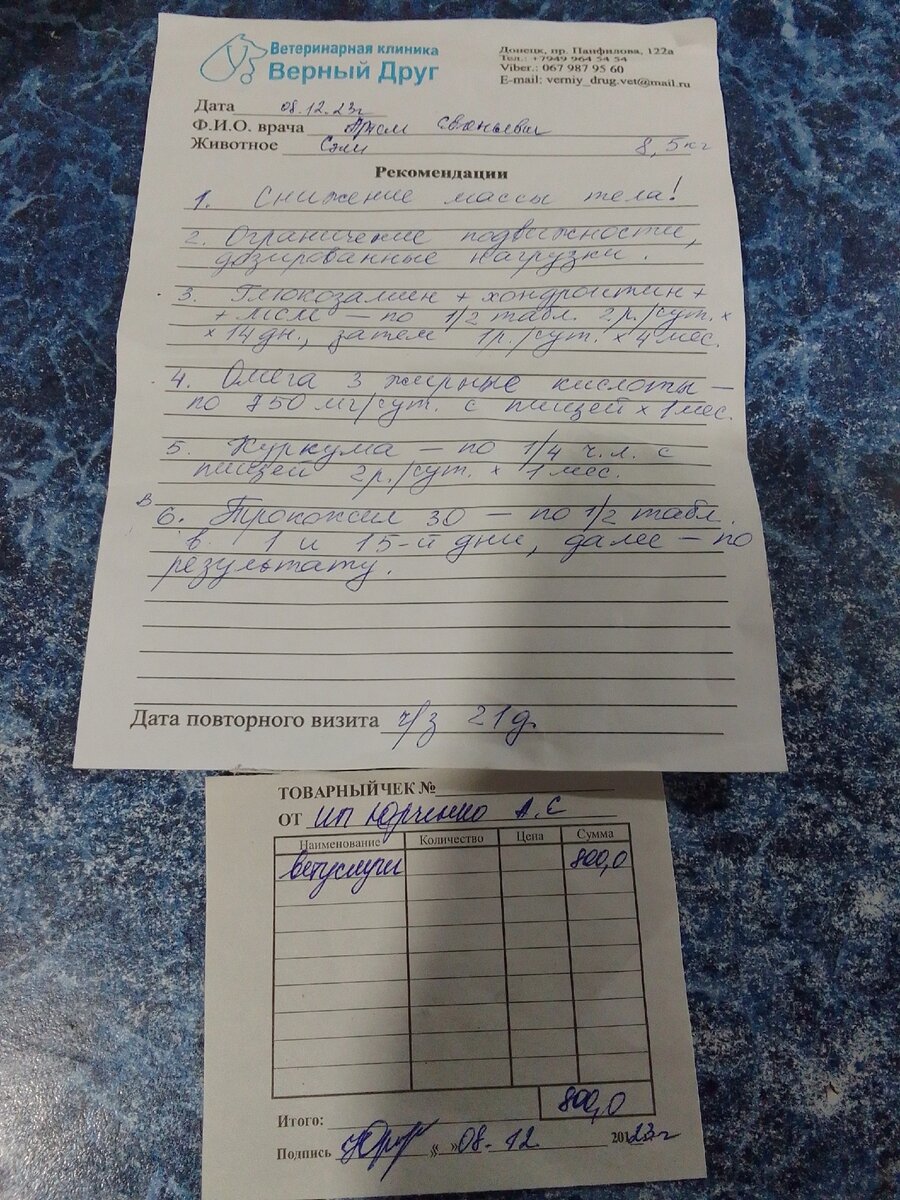 Ветеринарная клиника
Верный Друг
Донецк, пр. Панфилова, 122а
Тел.: +7949 964 54 54
Viber.: 067 987 95 60
E-mail: verniy_drug.vet@mail.ru
Дата 08.12.23г
Ф.И.О. врача
Животное Сэми 8,5кг
Рекомендации
1. Снижение массы тела!
2. Ограничение подвижности,
дозированные нагрузки.
3. Глюкозамин + хондроитин +
+ МСМ – по 1/2 табл. 2р./сут. х
х 14 дн., затем 1р./сут. х 4 мес.
4. Омега 3 жирные кислоты –
по 750 мг/сут. с пищей х 1 мес.
5. Куркума – по 1/4 ч.л. с
пищей 2р./сут. х 1 мес.
В 6. Трококсил 30 – по 1/2 табл.
в 1 и 15-й дни, далее – по
результату.
Дата повторного визита ч/з 21д.
ТОВАРНЫЙ ЧЕК №
ОТ ИП Юрченко А.С
Наименование Количество Цена Сумма
Ветуслуги 800,0
Итого: 800,0
Подпись « » 08. 12. 20123г